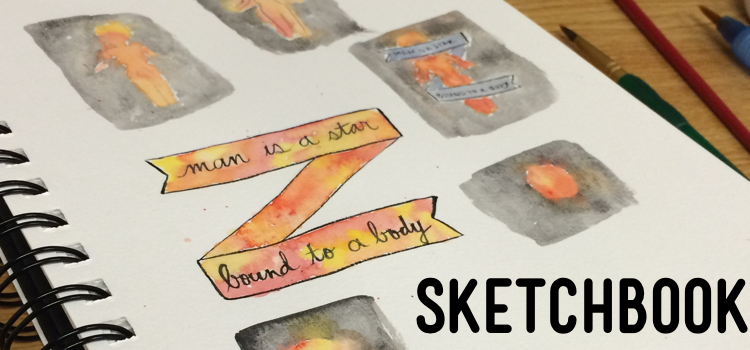 man is a star
bound to a body
MAN IS A STAR
BOUND TO A BODY
SKETCHBOOK